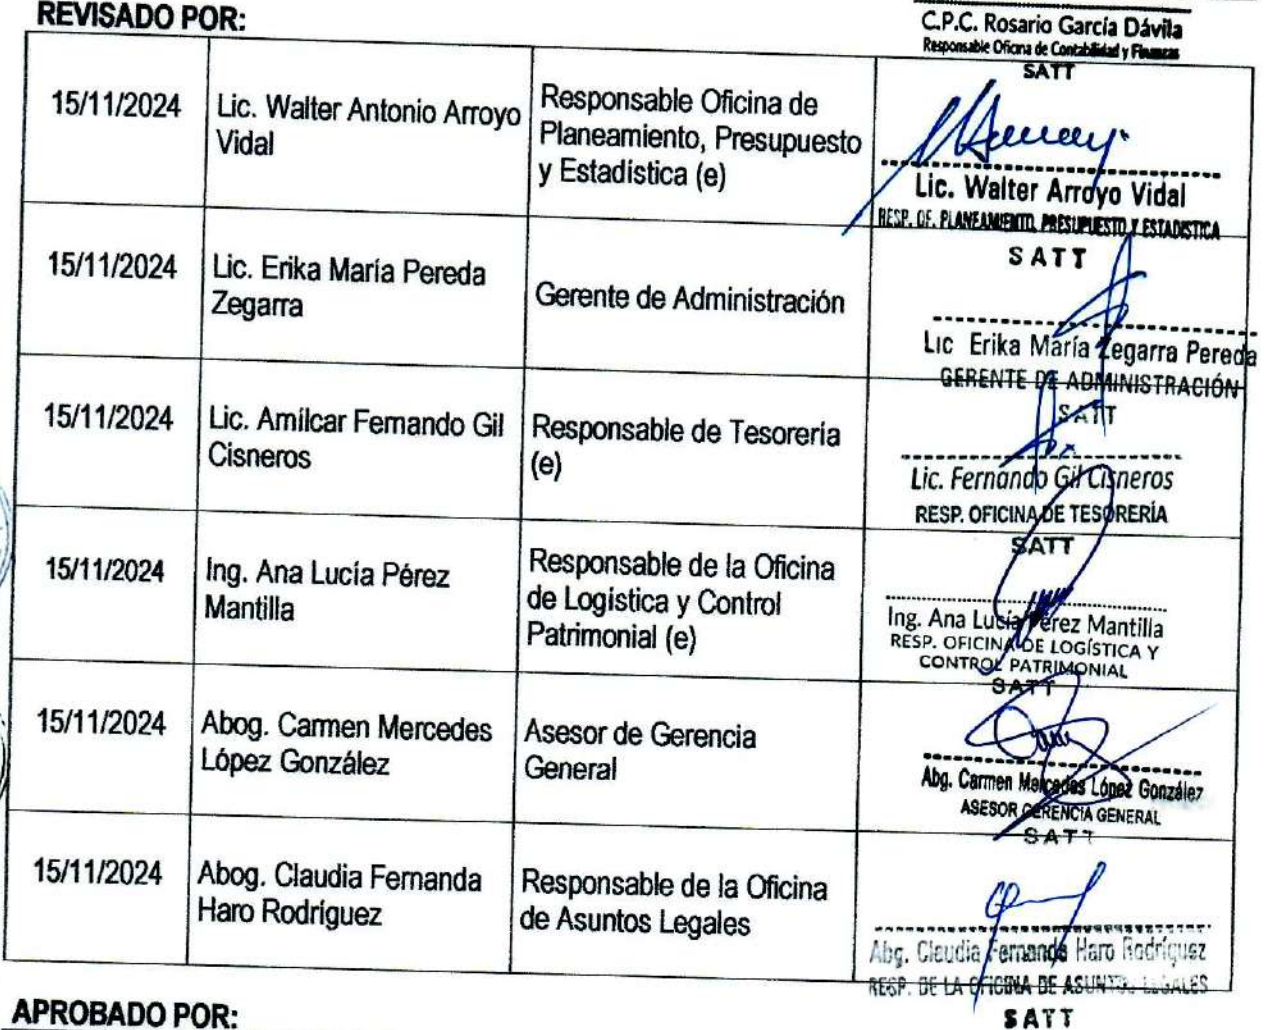 REVISADO POR:
C.P.C. Rosario García Dávila
Responsable Oficina de Contabilidad y Finanzas
SATT
15/11/2024
Lic. Walter Antonio Arroyo
Vidal
Responsable Oficina de
Planeamiento, Presupuesto
y Estadística (e)
Lic. Walter Arroyo Vidal
RESP. OF. PLANEAMIENTO, PRESUPUESTO Y ESTADISTICA
SATT
15/11/2024
Lic. Erika María Pereda
Zegarra
Gerente de Administración
Lic Erika María Zegarra Pereda
GERENTE DE ADMINISTRACIÓN
SATT
15/11/2024
Lic. Amílcar Fernando Gil
Cisneros
Responsable de Tesorería
(e)
Lic. Fernando Gil Cisneros
RESP. OFICINA DE TESORERÍA
SATT
15/11/2024
Ing. Ana Lucía Pérez
Mantilla
Responsable de la Oficina
de Logística y Control
Patrimonial (e)
Ing. Ana Lucía Pérez Mantilla
RESP. OFICINA DE LOGÍSTICA Y
CONTROL PATRIMONIAL
SATT
15/11/2024
Abog. Carmen Mercedes
López González
Asesor de Gerencia
General
Abg. Carmen Mercedes López González
ASESOR GERENCIA GENERAL
SATT
15/11/2024
Abog. Claudia Fernanda
Haro Rodríguez
Responsable de la Oficina
de Asuntos Legales
Abg. Claudia Fernanda Haro Rodríguez
RESP. DE LA OFICINA DE ASUNTOS LEGALES
SATT
APROBADO POR: